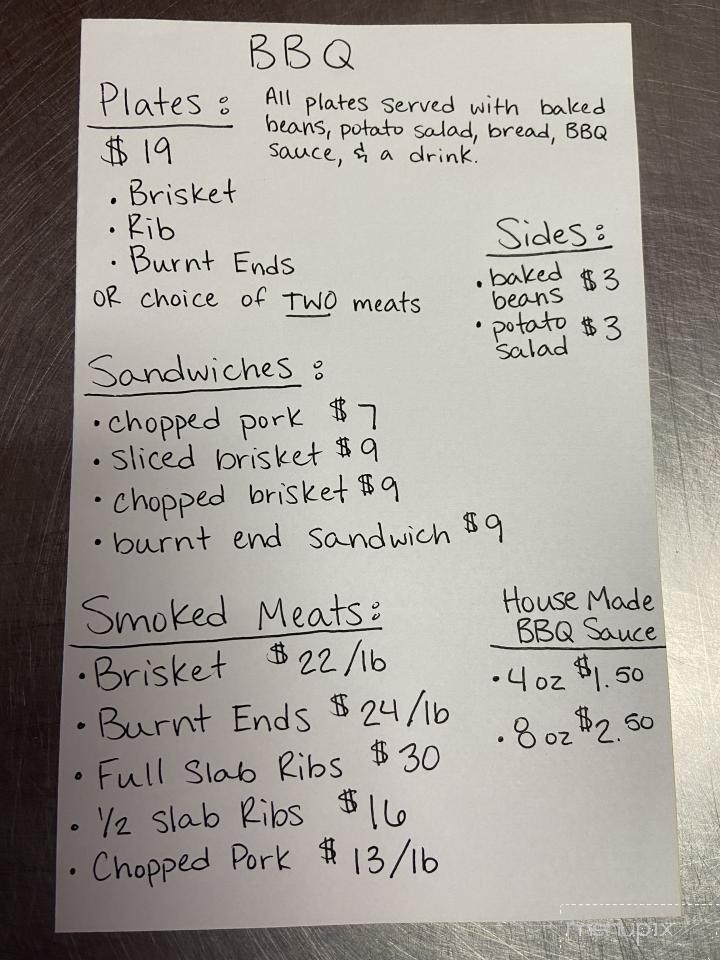 BBQ
Plates:
$19
All plates served with baked
beans, potato salad, bread, BBQ
sauce, & a drink.
• Brisket
• Rib
• Burnt Ends
OR choice of TWO meats
Sides:
• baked beans $3
• potato salad $3
Sandwiches:
• chopped pork $7
• sliced brisket $9
• chopped brisket $9
• burnt end sandwich $9
Smoked Meats:
• Brisket $22/lb
• Burnt Ends $24/lb
• Full Slab Ribs $30
• 1/2 slab Ribs $16
• Chopped Pork $13/lb
House Made
BBQ Sauce
• 4 oz $1.50
• 8 oz $2.50
menupix